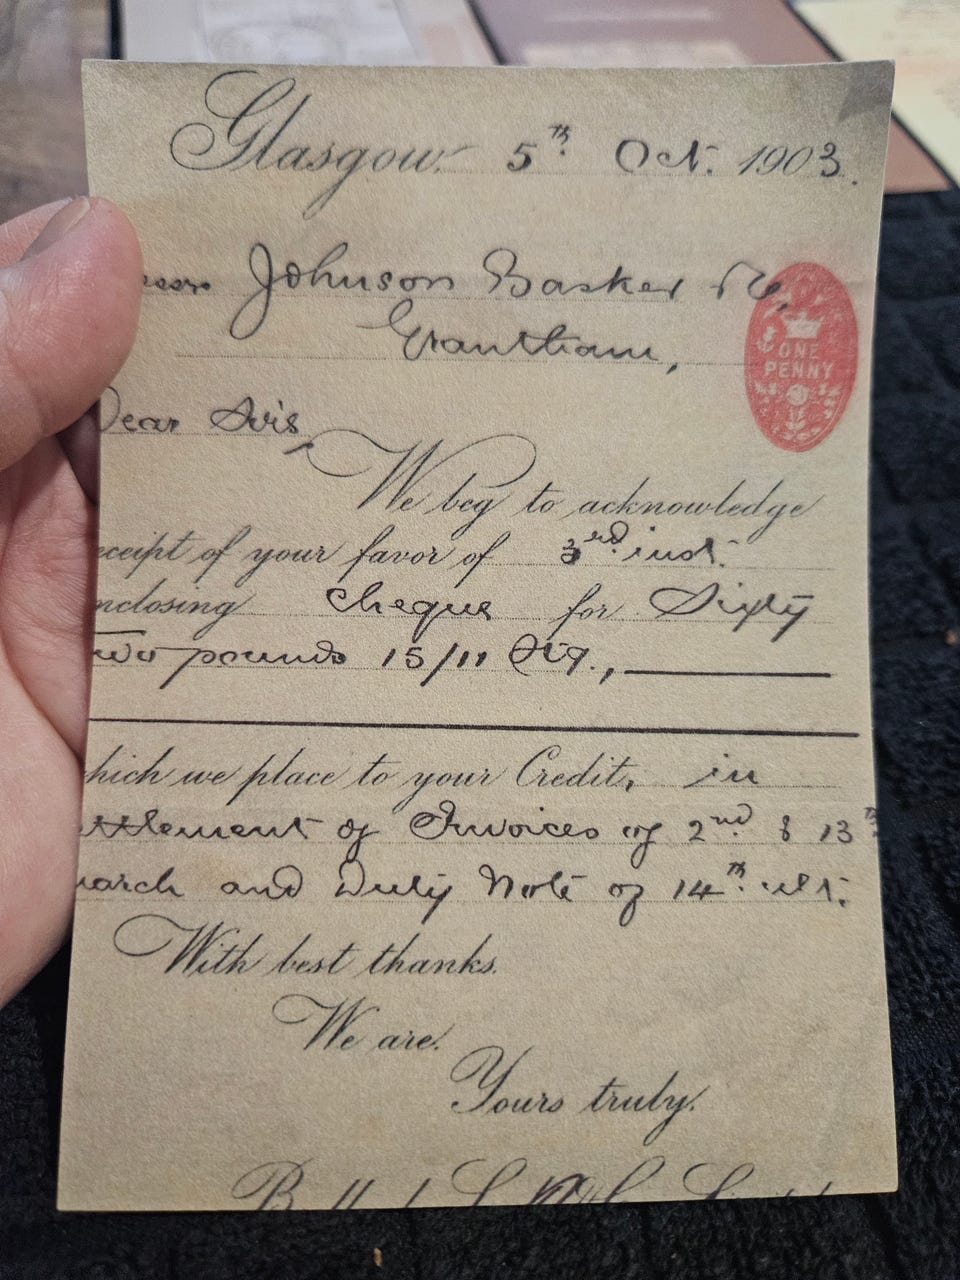 Glasgow. 5th. Oct. 1903.
Johnson Basker & Co,
Grantham,
ONE
PENNY
Dear Sirs,
We beg to acknowledge
eceipt of your favor of 3rd. inst.
nclosing cheque for Sixty
Two pounds 15/11 Stg.,
hich we place to your Credit, in
ettlement of Invoices of 2nd. & 13th
march and Duty Note of 14th. ult.
With best thanks.
We are.
Yours truly.